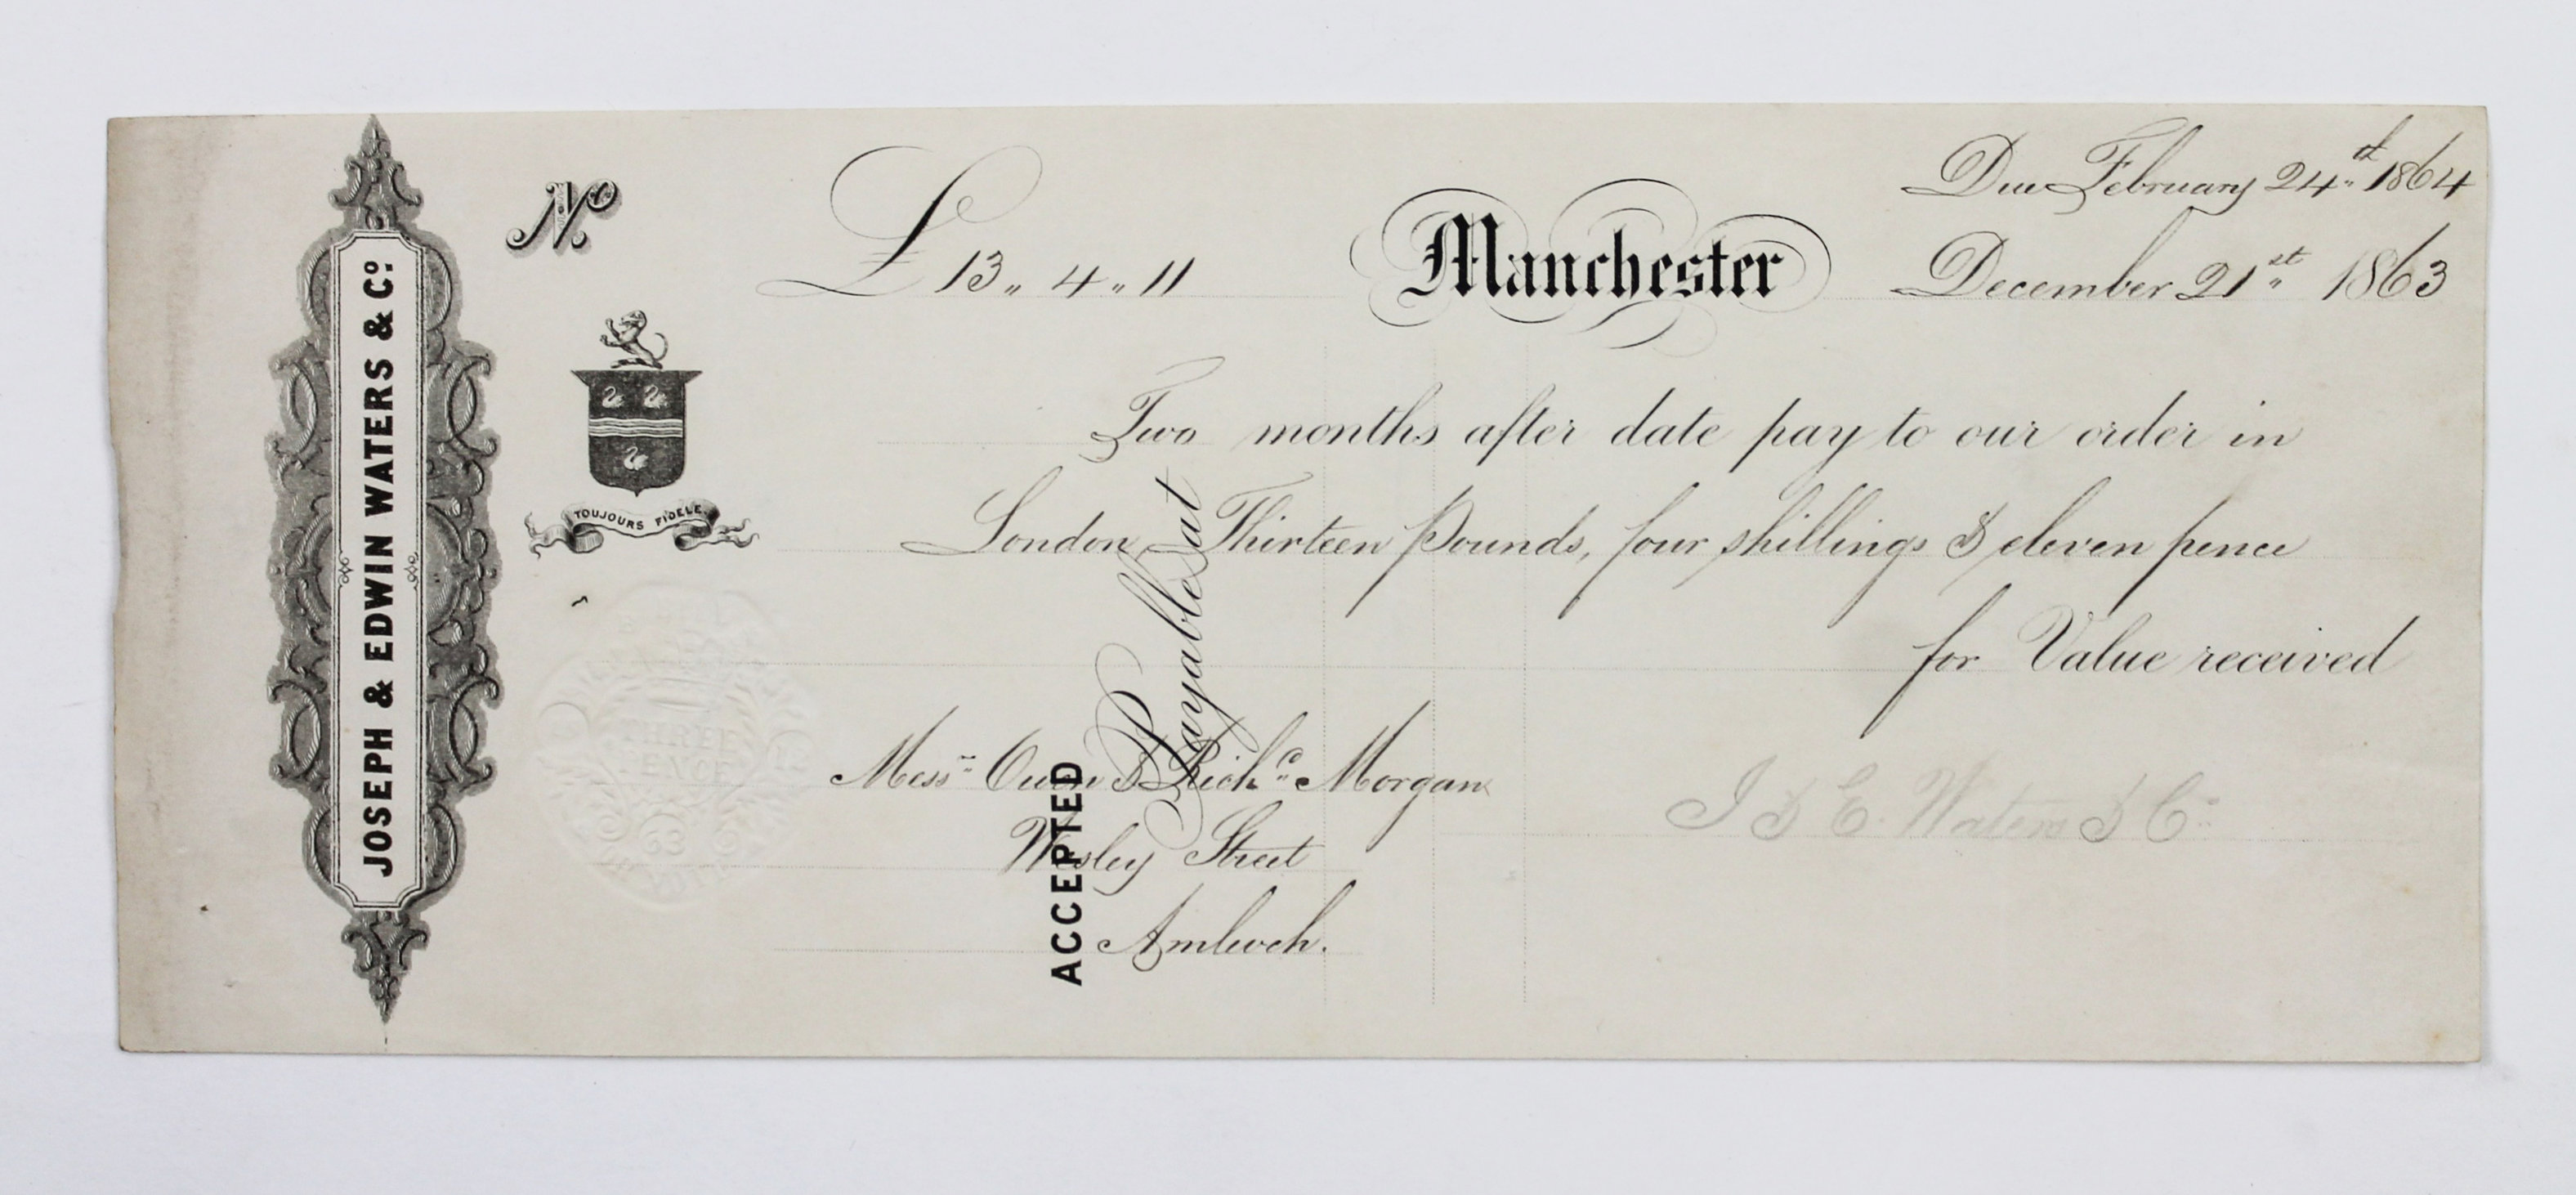 JOSEPH & EDWIN WATERS & Co.
No.
£ 13 „ 4 „ 11
Manchester
Due February 24th 1864
December 21st 1863
TOUJOURS FIDELE.
Two months after date pay to our order in
London Thirteen Pounds, four shillings & eleven pence
for Value received
ACCEPTED Payable at
THREE
PENCE
63
Messrs Owen & Richd Morgan
Wesley Street
Amlwch.
J & E. Waters & Co